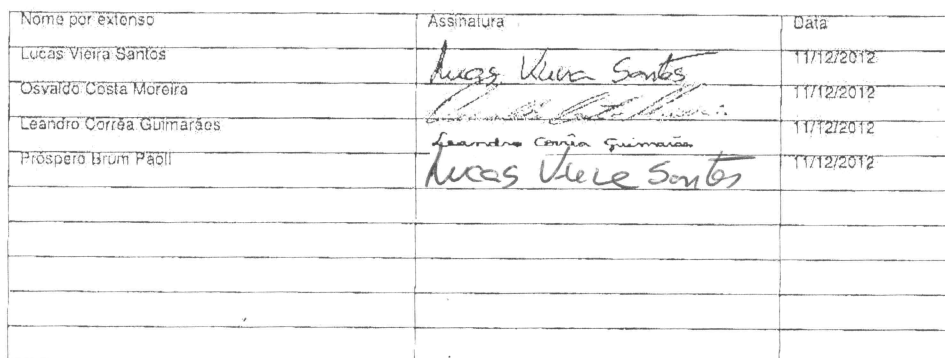 Nome por extenso Assinatura Data
Lucas Vieira Santos Lucas Vieira Santos 11/12/2012
Osvaldo Costa Moreira 11/12/2012
Leandro Corrêa Guimarães Leandro Corrêa Guimarães 11/12/2012
Próspero Brum Paoli Lucas Vieira Santos 11/12/2012